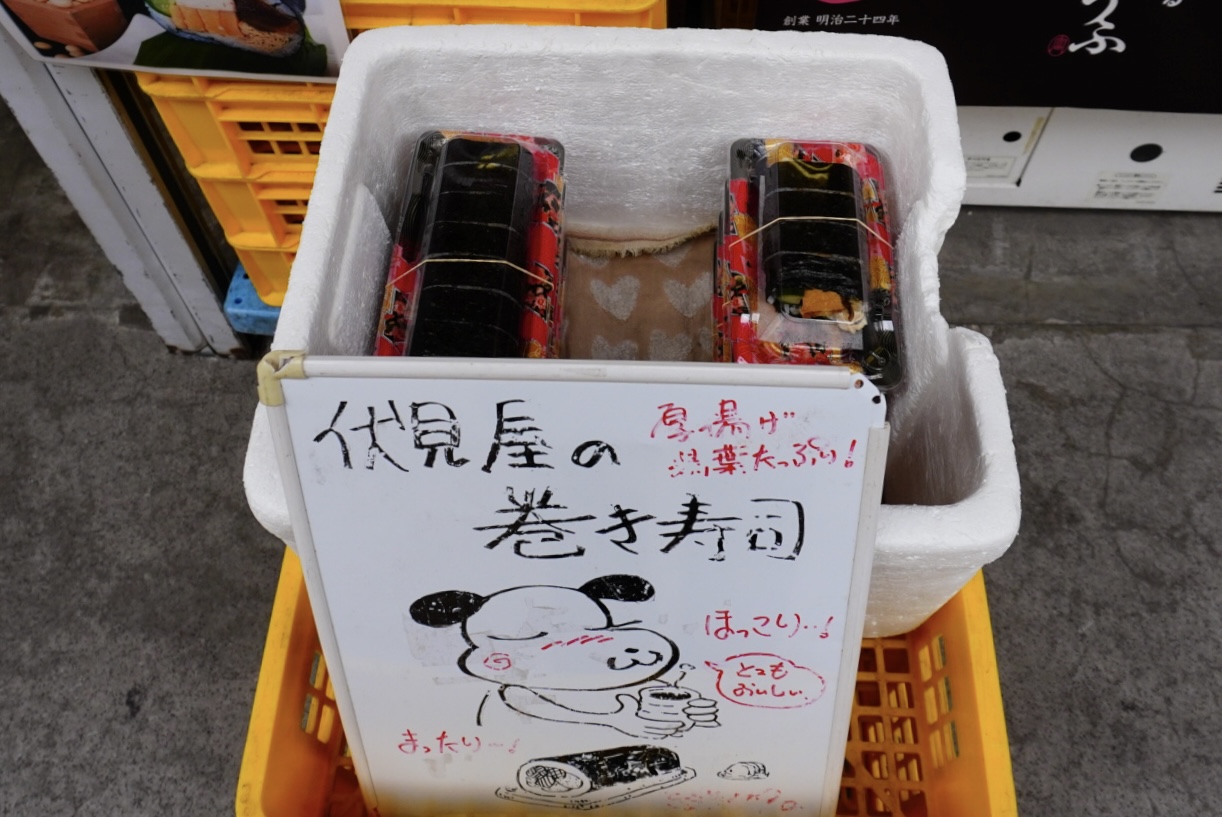 創業 明治二十四年
うふ
伏見屋の
厚揚げ
巻き寿司
ほっこり…!
とても
おいしい
まったり〜!